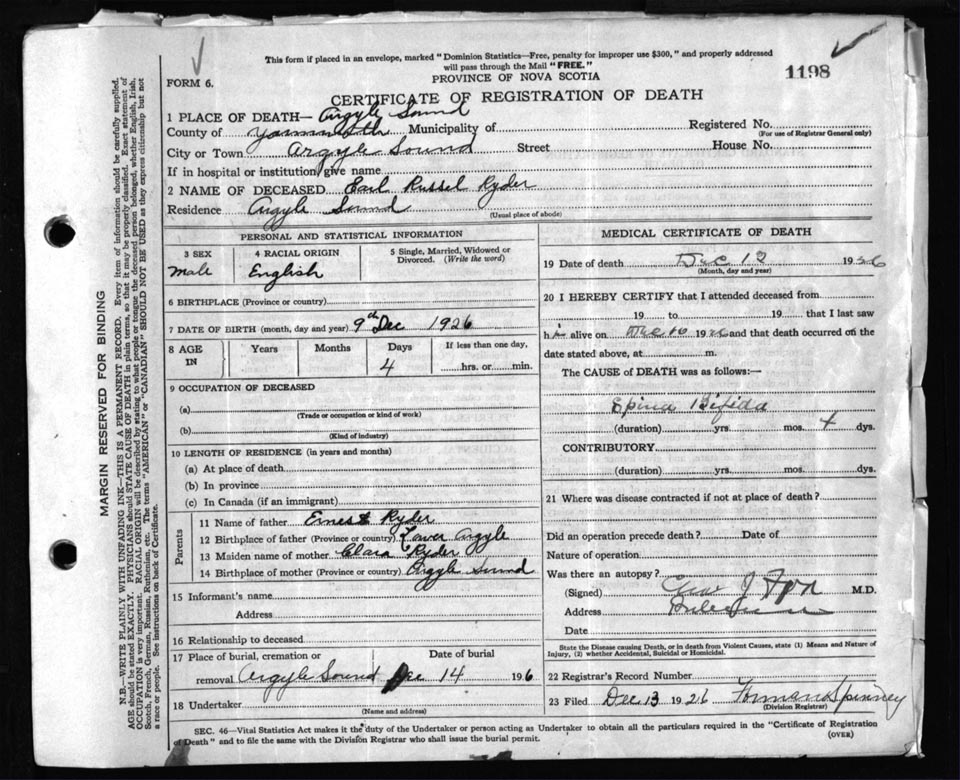 This form if placed in an envelope, marked "Dominion Statistics—Free, penalty for improper use $300," and properly addressed
will pass through the Mail "FREE."
FORM 6.
PROVINCE OF NOVA SCOTIA
1198
CERTIFICATE OF REGISTRATION OF DEATH
1 PLACE OF DEATH— Argyle Sound
County of Yarmouth Municipality of Registered No.
(For use of Registrar General only)
City or Town Argyle Sound Street House No.
If in hospital or institution, give name
2 NAME OF DECEASED Earl Russel Ryder
Residence Argyle Sound
(Usual place of abode)
PERSONAL AND STATISTICAL INFORMATION
3 SEX 4 RACIAL ORIGIN 5 Single, Married, Widowed or
Divorced. (Write the word)
male English
6 BIRTHPLACE (Province or country)
7 DATE OF BIRTH (month, day and year) 9th Dec 1926
8 AGE IN Years Months Days If less than one day,
4 hrs. or min.
9 OCCUPATION OF DECEASED
(a)
(Trade or occupation or kind of work)
(b)
(Kind of industry)
10 LENGTH OF RESIDENCE (in years and months)
(a) At place of death
(b) In province
(c) In Canada (if an immigrant)
Parents
11 Name of father Ernest Ryder
12 Birthplace of father (Province or country) Lower Argyle
13 Maiden name of mother Clara Ryder
14 Birthplace of mother (Province or country) Argyle Sound
15 Informant's name
Address
16 Relationship to deceased
17 Place of burial, cremation or Date of burial
removal Argyle Sound Dec 14 196
18 Undertaker
(Name and address)
MEDICAL CERTIFICATE OF DEATH
19 Date of death Dec 12 1926
(Month, day and year)
20 I HEREBY CERTIFY that I attended deceased from
19 to 19 that I last saw
h alive on Dec 10 1926 and that death occurred on the
date stated above, at m.
The CAUSE of DEATH was as follows:—
Spina Bifida
(duration) yrs. mos. 4 dys.
CONTRIBUTORY
(duration) yrs. mos. dys.
21 Where was disease contracted if not at place of death?
Did an operation precede death? Date of
Nature of operation
Was there an autopsy?
(Signed) M.D.
Address
Date
State the Disease causing Death, or in death from Violent Causes, state (1) Means and Nature of
Injury, (2) whether Accidental, Suicidal or Homicidal.
22 Registrar's Record Number
23 Filed Dec 13 1926 Spinney
(Division Registrar)
SEC. 46—Vital Statistics Act makes it the duty of the Undertaker or person acting as Undertaker to obtain all the particulars required in the "Certificate of Registration
of Death" and to file the same with the Division Registrar who shall issue the burial permit. (OVER)
MARGIN RESERVED FOR BINDING
N.B.—WRITE PLAINLY WITH UNFADING INK—THIS IS A PERMANENT RECORD. Every item of information should be carefully supplied.
AGE should be stated EXACTLY. PHYSICIANS should STATE CAUSE OF DEATH in plain terms, so that it may be properly classified. Exact statement of
OCCUPATION is very important. RACIAL ORIGIN will be described by stating to what people or tongue the deceased person belonged, whether English, Irish,
Scotch, French, German, Russian, Ruthenian, etc. The terms "AMERICAN" or "CANADIAN" SHOULD NOT BE USED as they express citizenship but not
a race or people. See instructions on back of Certificate.